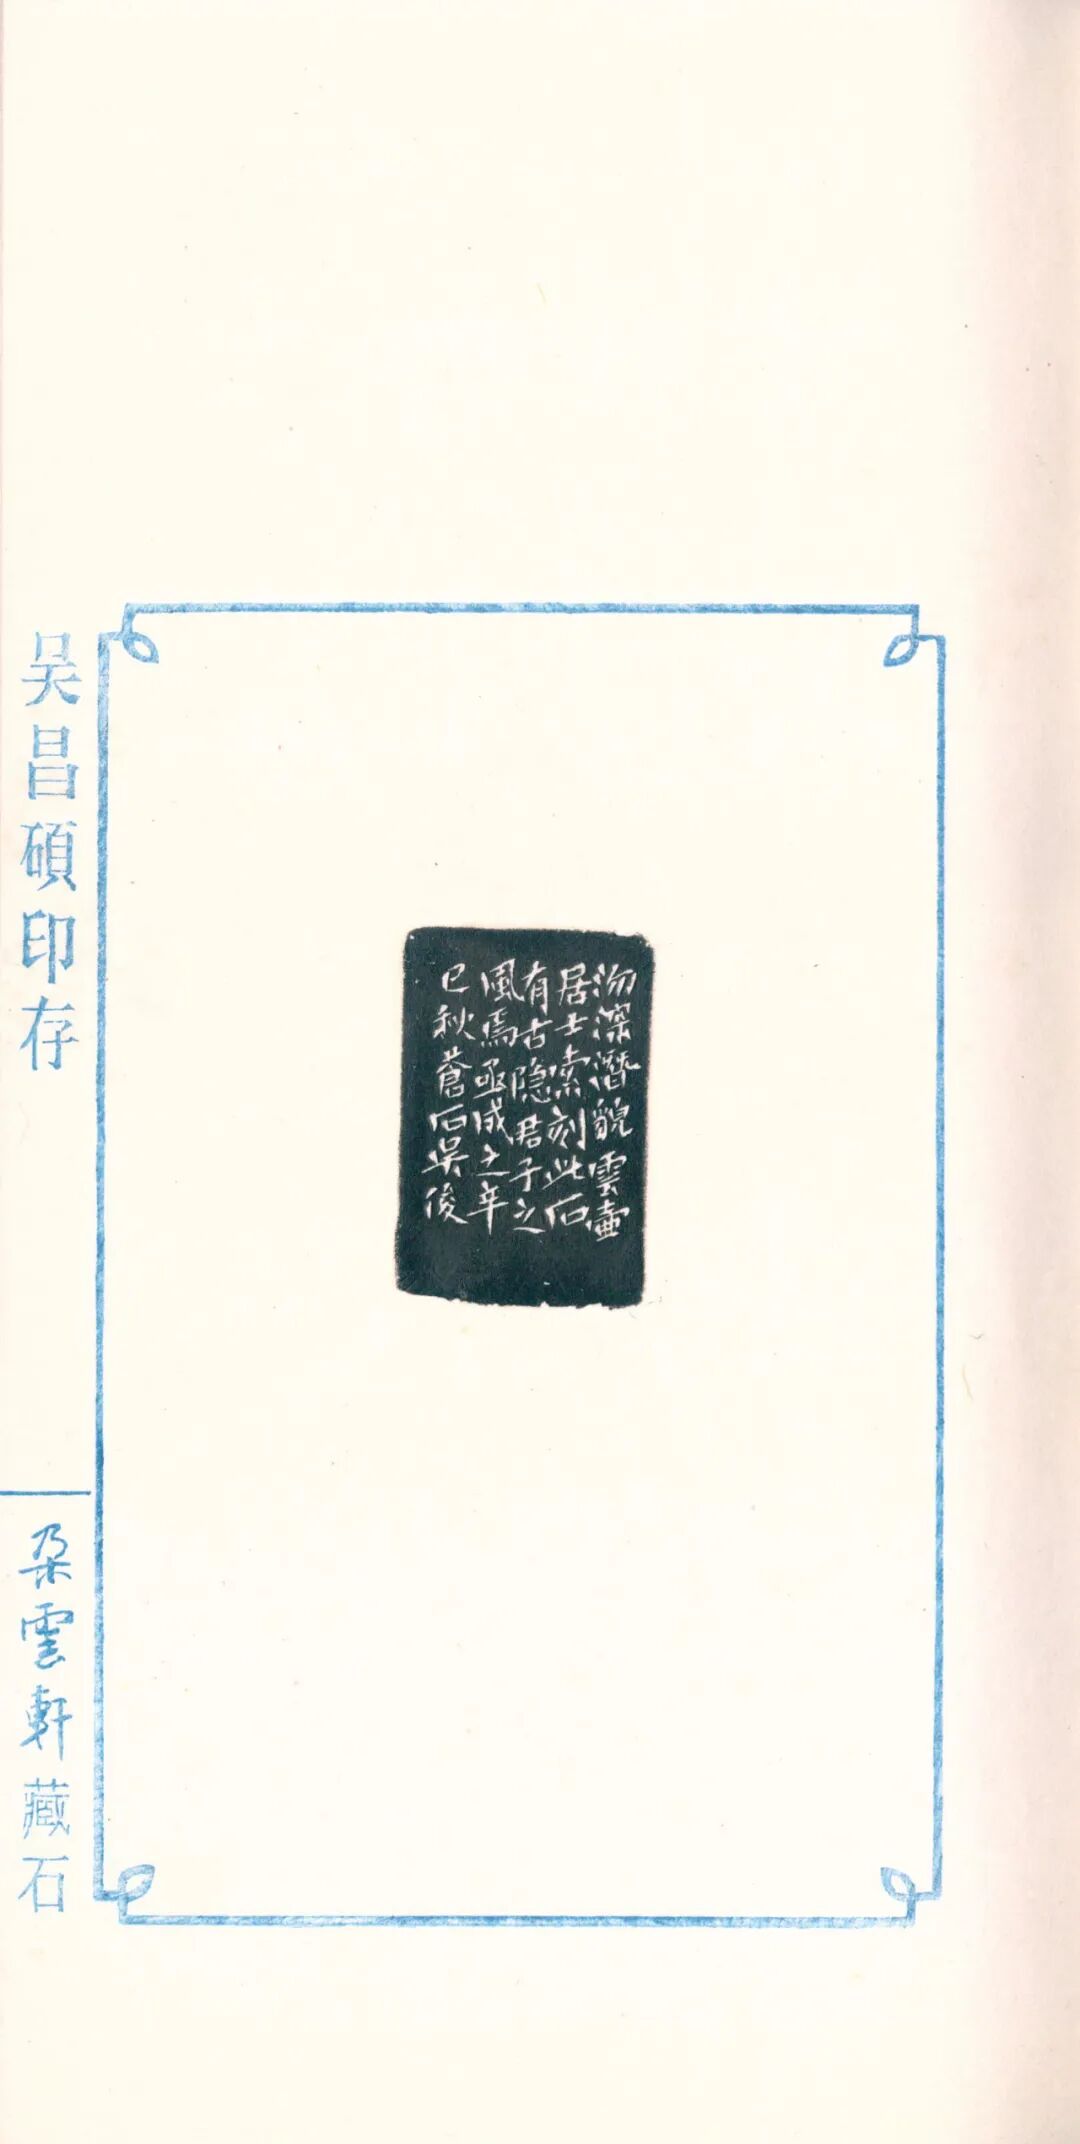 沕深潛貌雲壷
居士索刻此石
有古隐君子之
風焉亟成之辛
巳秋蒼石吴俊
吴昌碩印存
朵雲軒藏石